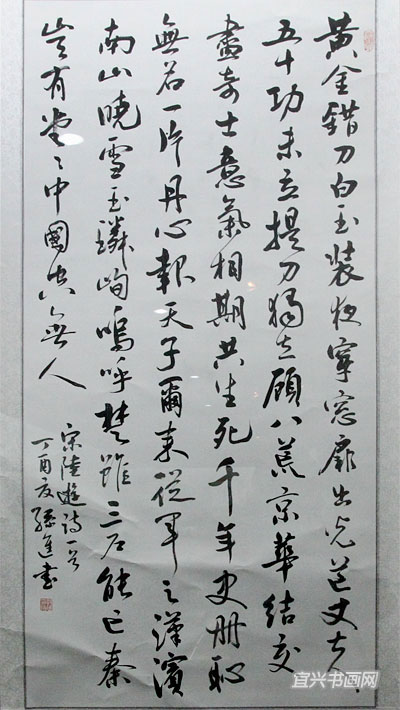 黄金錯刀白玉装夜穿窓扉出光芒丈夫
五十功未立提刀獨立顧八荒京華結交
盡奇士意氣相期共生死千年史册恥
無名一片丹心報天子爾来從軍天漢濱
南山曉雪玉嶙峋嗚呼楚雖三户能亡秦
豈有堂〻中國空無人
宋陸遊詩一首
丁酉夏孫進書
宜兴书画网